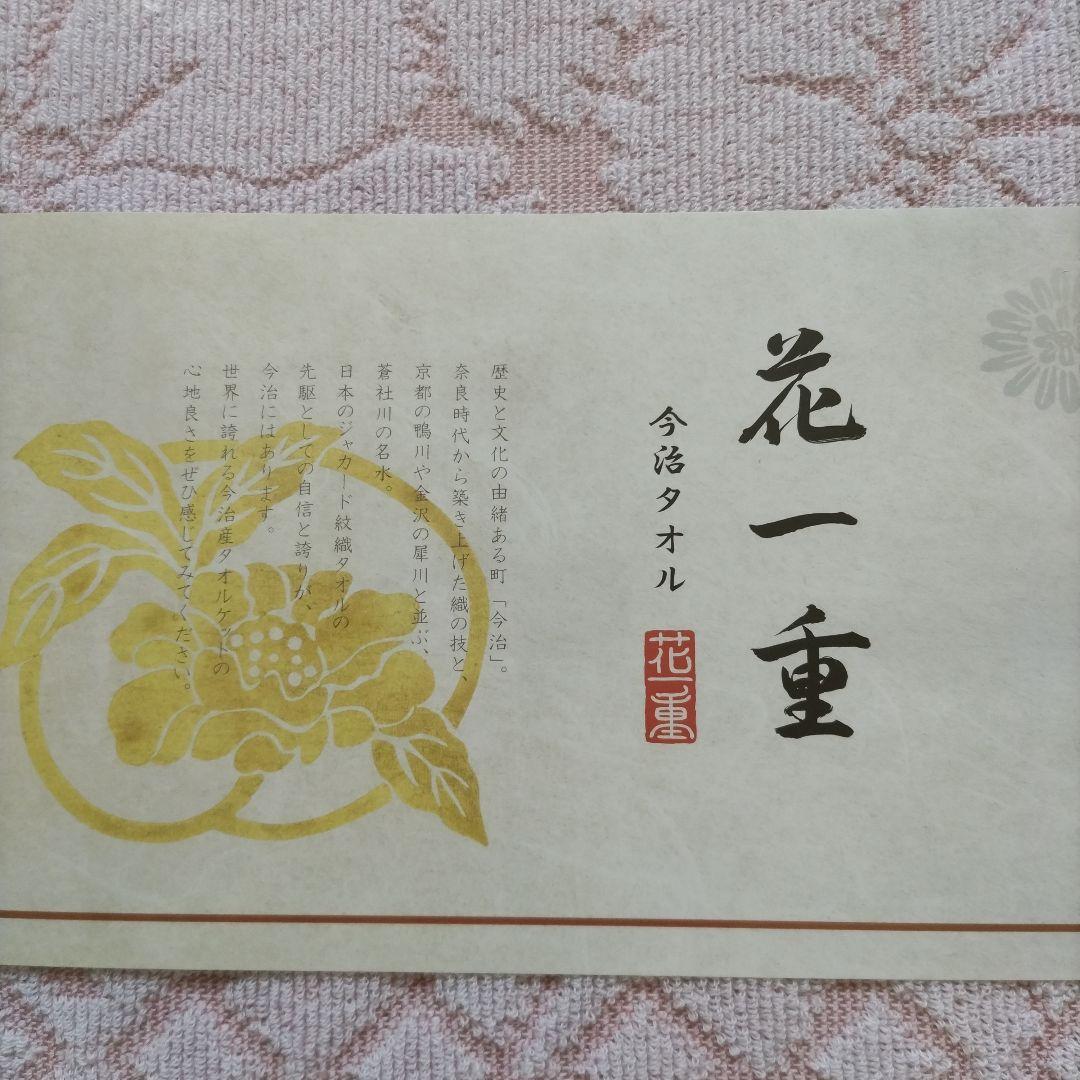 花一重
今治タオル
花一重
歴史と文化の由緒ある町「今治」。
奈良時代から築き上げた織の技と、
京都の鴨川や金沢の犀川と並ぶ、
蒼社川の名水。
日本のジャカード紋織タオルの
先駆としての自信と誇りが、
今治にはあります。
世界に誇れる今治産タオルケットの
心地良さをぜひ感じてみてください。